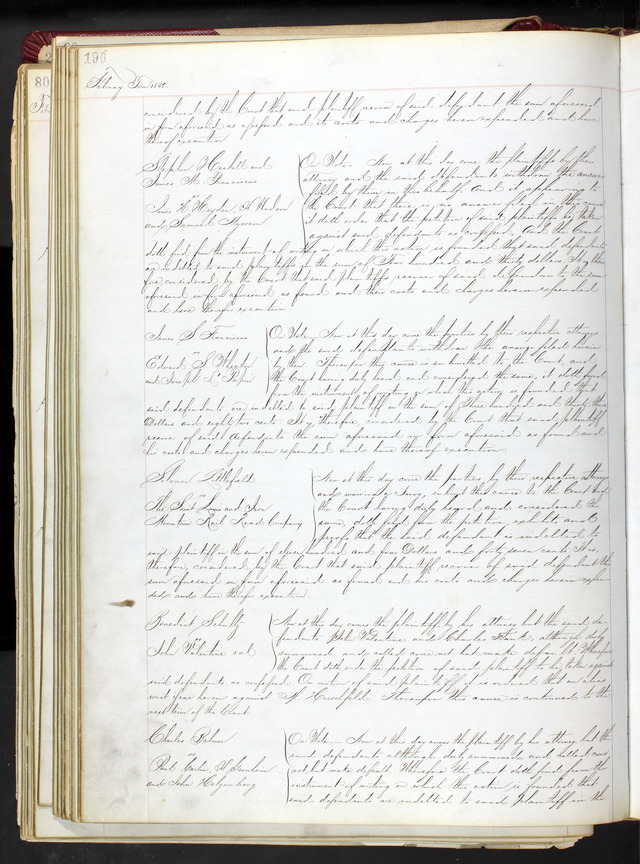 196
80
February Term 18
considered by the Court that said plaintiff recover of said defendant the sum aforesaid
in form aforesaid as found and its costs and charges herein expended and have
thereof execution
Stephen and
James W. Franciscus
vs
James H. Hayden
and Samuel
On Note. Now at this day come the plaintiffs by their
attorney and the said defendants withdraw the answer
filed by them in this behalf And it appearing to
the Court that there is no answer filed in this cause
it doth order that the petition of said plaintiffs be taken
against said defendants as confessed. And the Court
doth find from the instrument of writing on which the action is founded that said defendants
are indebted to said plaintiffs in the sum of hundred and thirty dollars It is, there
fore, considered by the Court that said plaintiffs recover of said defendants the sum
aforesaid in form aforesaid as found and their costs and charges herein expended
and have thereof execution.
James S. Franciscus
vs
Edward S.
and Joseph L.
On Note. Now at this day come the parties by their respective attorneys
and the said defendants withdraw the answer filed herein
by them Thereupon this cause is submitted to the Court, and
the Court having duly heard and considered the same, it doth find
from the instrument of writing on which the action is founded that
said defendants are indebted to said plaintiff in the sum of Three hundred and thirty three
Dollars and eighty two cents. It is, therefore, considered by the Court that said plaintiff
recover of said defendants the sum aforesaid in form aforesaid as found and
his costs and charges herein expended and have thereof execution.
vs
The Saint Louis and Iron
Mountain Rail Road Company
Now at this day come the parties by their respective attorneys
and waiving a Jury, submit this cause to the Court and
the Court having duly heard and considered the
same, doth find from the petition, exhibit, and
proofs that the said defendant is indebted to
said plaintiff in the sum of hundred and four Dollars and forty seven cents It is,
therefore, considered by the Court that said plaintiff recover of said defendant the
sum aforesaid in form aforesaid as found and his costs and charges herein expen
ded and have thereof execution.
Benedict Schultz
vs
John Valentine et al
Now at this day comes the plaintiff by his attorney but the said de-
fendants John Valentine and Charles although duly
summoned and called come not but make default Whereupon
the Court doth order the petition of said plaintiff to be taken against
said defendants as confessed On motion of said plaintiff it is ordered that an alias
writ issue herein against Thereupon this cause is continued to the
next term of the Court
Charles
vs
and John
On Note. Now at this day comes the plaintiff by his attorney but the
said defendants although duly summoned and called come
not but make default Whereupon the Court doth find from the
instrument of writing on which the action is founded that
said defendants are indebted to said plaintiff in the